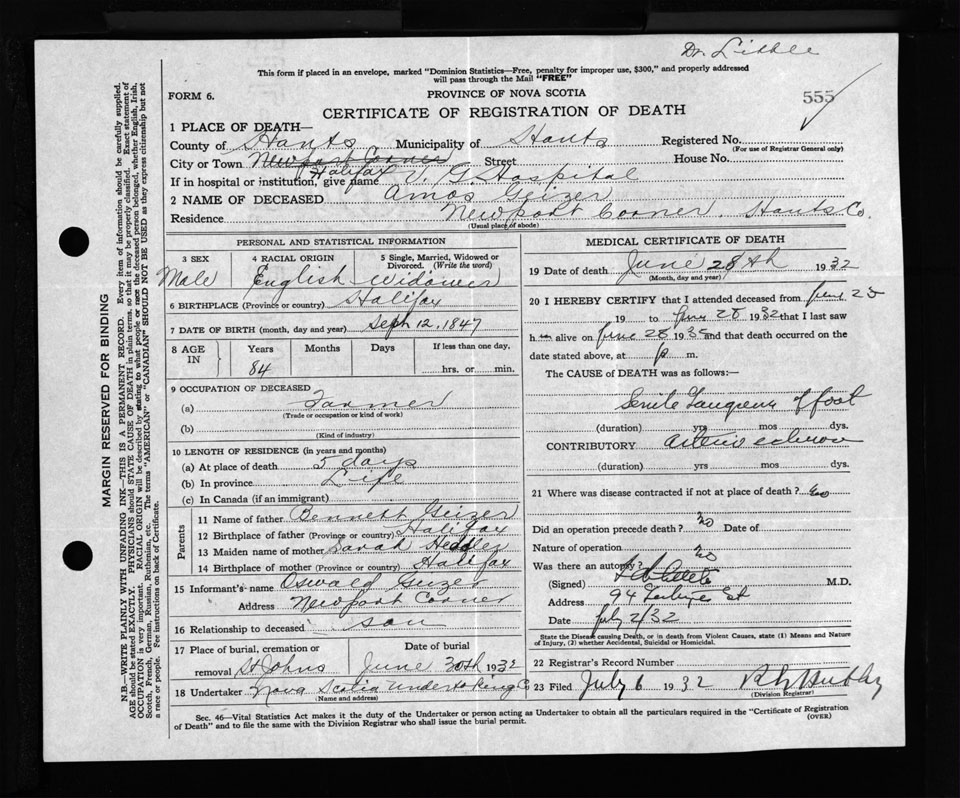 Dr. Little
This form if placed in an envelope, marked "Dominion Statistics—Free, penalty for improper use, $300," and properly addressed
will pass through the Mail "FREE"
FORM 6.
PROVINCE OF NOVA SCOTIA
555
CERTIFICATE OF REGISTRATION OF DEATH
1 PLACE OF DEATH—
County of Hants Municipality of Hants Registered No.
(For use of Registrar General only)
City or Town Newport Corner Halifax Street House No.
If in hospital or institution, give name V. G. Hospital
2 NAME OF DECEASED Amos Geizer
Residence Newport Corner. Hants Co.
(Usual place of abode)
PERSONAL AND STATISTICAL INFORMATION
3 SEX 4 RACIAL ORIGIN 5 Single, Married, Widowed or Divorced. (Write the word)
Male English Widower
6 BIRTHPLACE (Province or country) Halifax
7 DATE OF BIRTH (month, day and year) Seph 12, 1847
8 AGE IN Years Months Days If less than one day,
84 hrs. or min.
9 OCCUPATION OF DECEASED
(a) Farmer
(Trade or occupation or kind of work)
(b)
(Kind of industry)
10 LENGTH OF RESIDENCE (in years and months)
(a) At place of death 5 days
(b) In province Life
(c) In Canada (if an immigrant)
Parents
11 Name of father Bennett Geizer
12 Birthplace of father (Province or country) Halifax
13 Maiden name of mother Sarah Hedley
14 Birthplace of mother (Province or country) Halifax
15 Informant's name Oswald Geizer
Address Newport Corner
16 Relationship to deceased son
17 Place of burial, cremation or removal Date of burial
St Johns June 30th 1932
18 Undertaker Nova Scotia Undertaking Co
(Name and address)
MEDICAL CERTIFICATE OF DEATH
19 Date of death June 28th 1932
(Month, day and year)
20 I HEREBY CERTIFY that I attended deceased from June 23
19 to June 28 1932 that I last saw
h im alive on June 28 1932 and that death occurred on the
date stated above, at p m.
The CAUSE of DEATH was as follows:—
Senile Gangrene of foot
(duration) yrs mos dys.
CONTRIBUTORY
(duration) yrs mos dys.
21 Where was disease contracted if not at place of death?
Did an operation precede death? no Date of
Nature of operation
Was there an autopsy? no
(Signed) M.D.
Address 94 St
Date July 2/32
State the Disease causing Death, or in death from Violent Causes, state (1) Means and Nature
of Injury, (2) whether Accidental, Suicidal or Homicidal.
22 Registrar's Record Number
23 Filed July 6 1932
(Division Registrar)
Sec. 46—Vital Statistics Act makes it the duty of the Undertaker or person acting as Undertaker to obtain all the particulars required in the "Certificate of Registration
of Death" and to file the same with the Division Registrar who shall issue the burial permit.
(OVER)
MARGIN RESERVED FOR BINDING
N.B.—WRITE PLAINLY WITH UNFADING INK—THIS IS A PERMANENT RECORD. Every item of information should be carefully supplied.
AGE should be stated EXACTLY. PHYSICIANS should STATE CAUSE OF DEATH in plain terms, so that it may be properly classified. Exact statement of
OCCUPATION is very important. RACIAL ORIGIN will be described by stating to what people or race the deceased person belonged, whether English, Irish,
Scotch, French, German, Russian, Ruthenian, etc. The terms "AMERICAN" or "CANADIAN" SHOULD NOT BE USED as they express citizenship but not
a race or people. Fee instructions on back of Certificate.